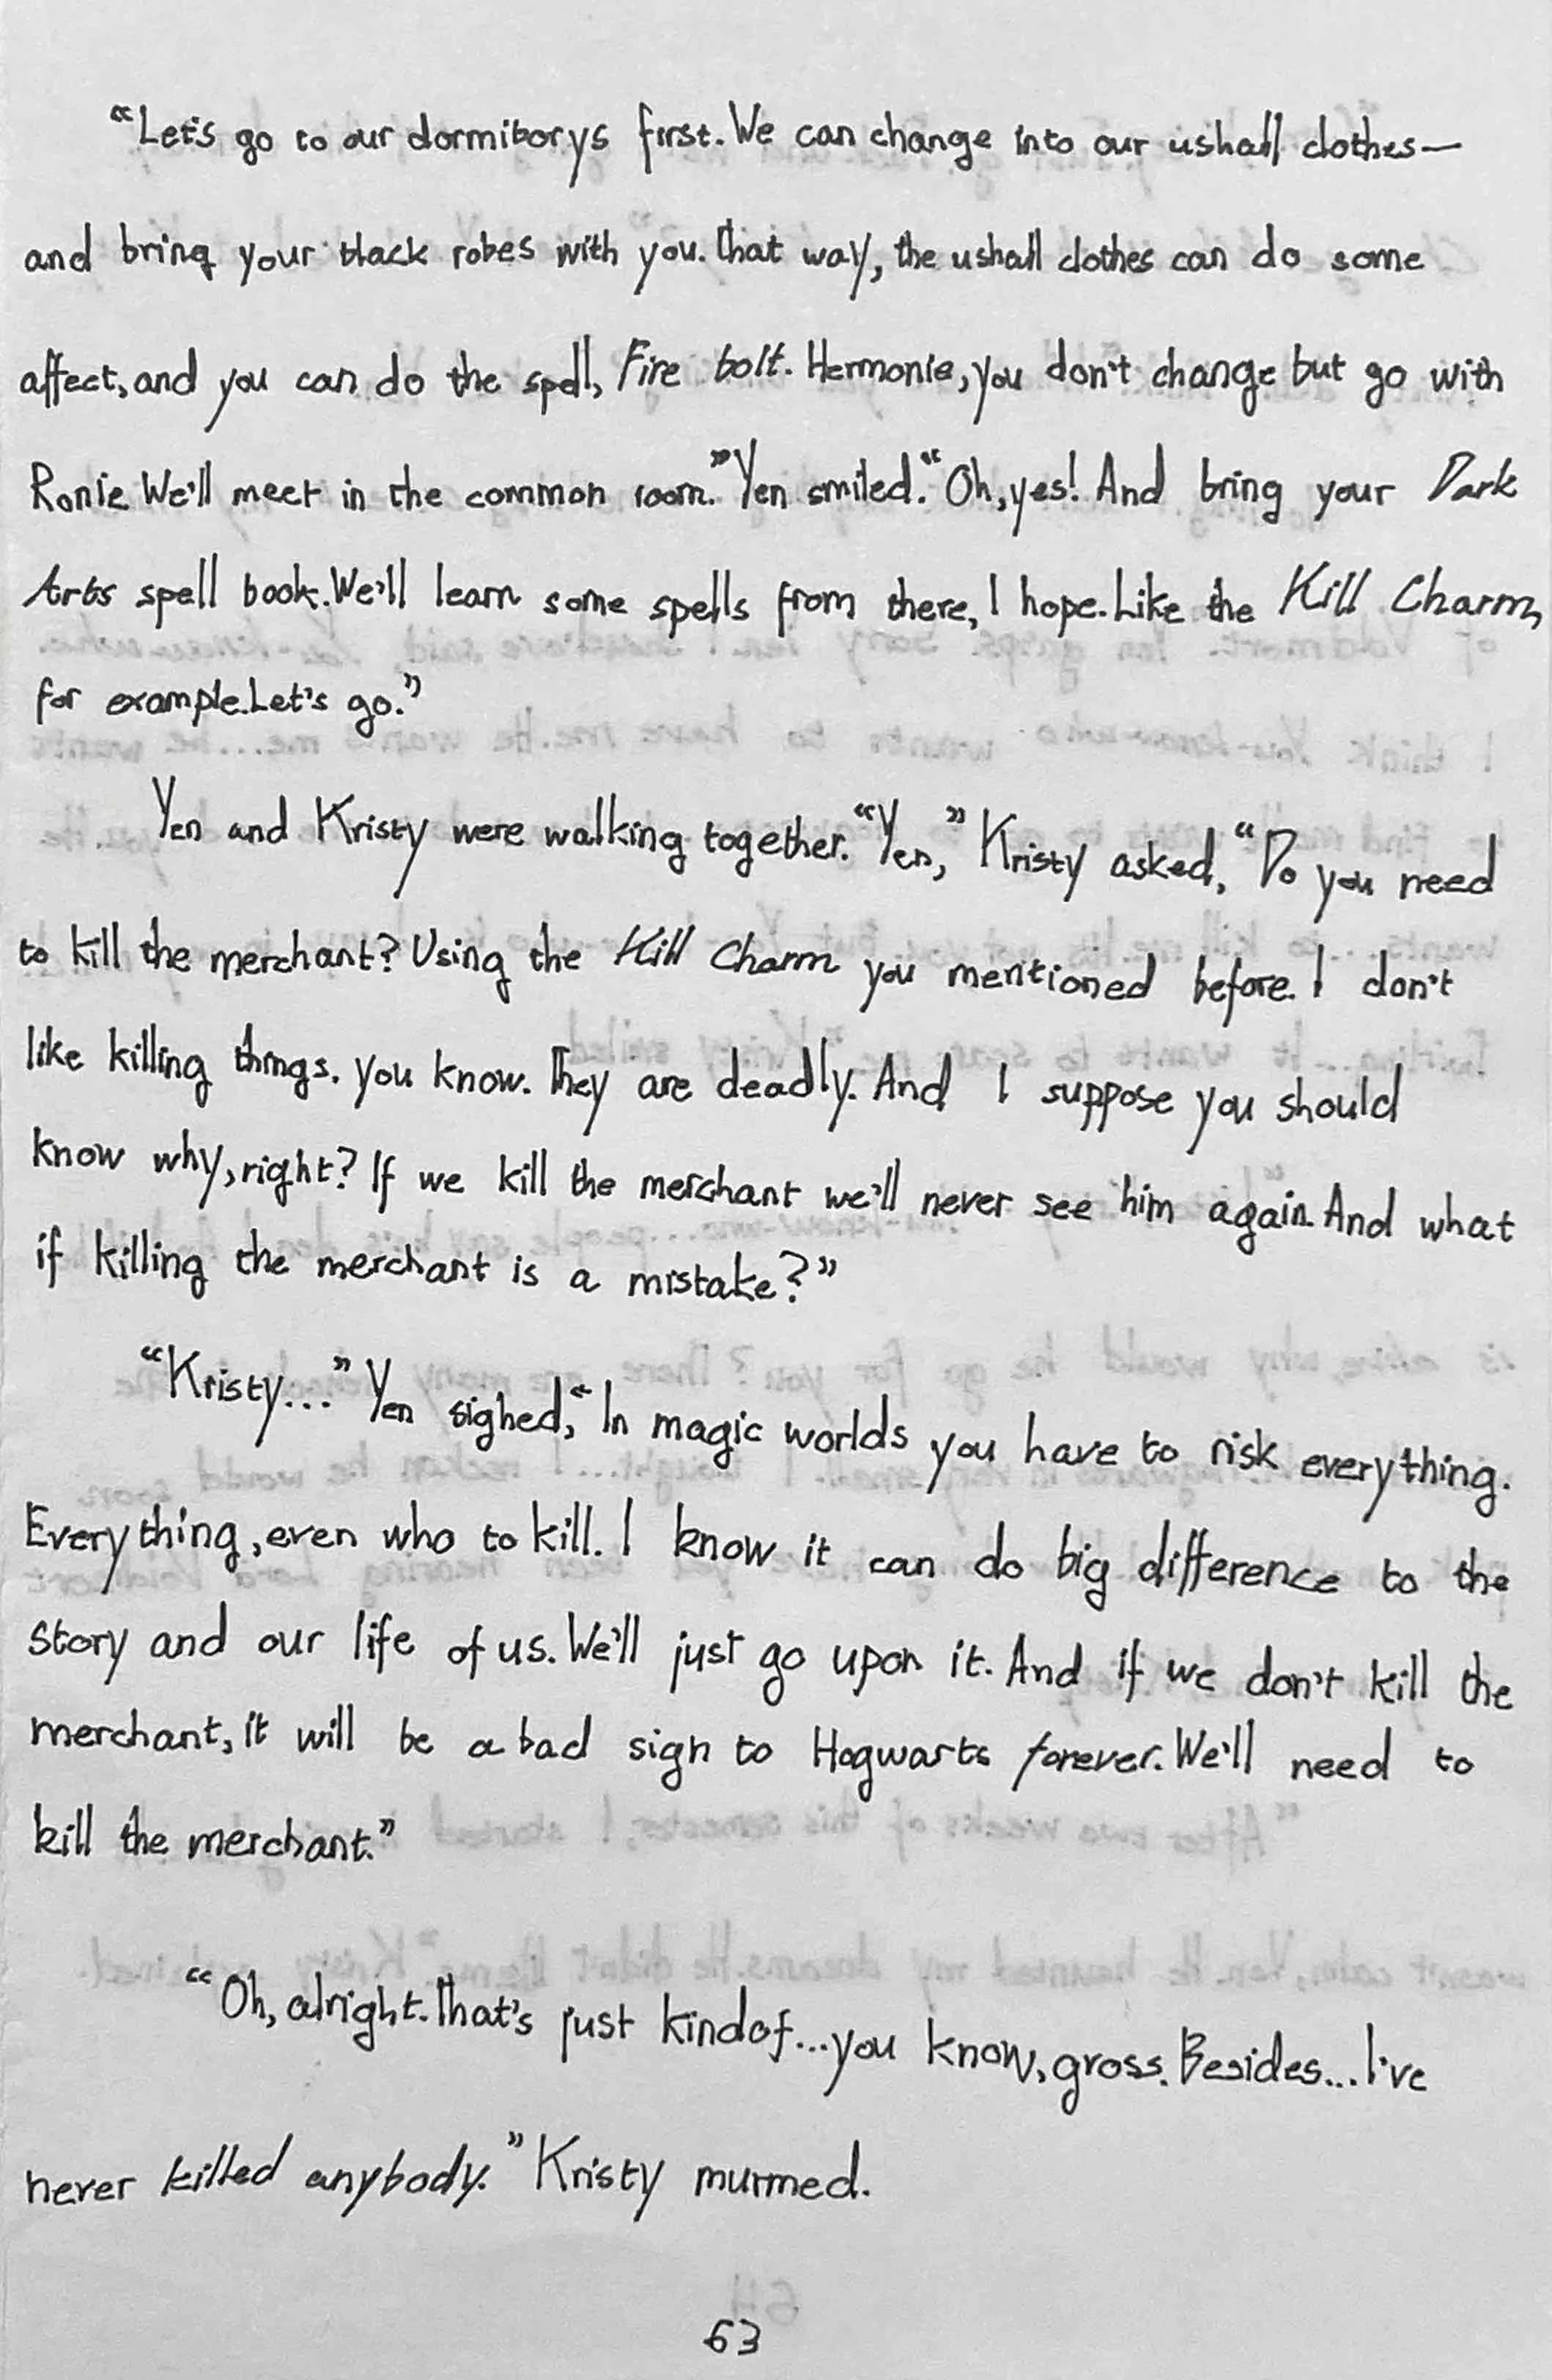 “Let's go to our dormitorys first. We can change into our ushall clothes—
and bring your black robes with you. That way, the ushall clothes can do some
affect, and you can do the spell, Fire bolt. Hermonie, you don't change but go with
Ronie. We'll meet in the common room.” Yen smiled. “Oh, yes! And bring your Dark
Arts spell book. We'll learn some spells from there, I hope. Like the Kill Charm,
for example. Let's go.”
Yen and Kristy were walking together. “Yen,” Kristy asked, “Do you need
to kill the merchant? Using the Kill Charm you mentioned before. I don't
like killing things. you know. They are deadly. And I suppose you should
know why, right? If we kill the merchant we'll never see him again. And what
if killing the merchant is a mistake?”
“Kristy...” Yen sighed, “In magic worlds you have to risk everything.
Everything, even who to kill. I know it can do big difference to the
story and our life of us. We'll just go upon it. And if we don't kill the
merchant, it will be a bad sign to Hogwarts forever. We'll need to
kill the merchant.”
“Oh, alright. That's just kindof...you know, gross. Besides...I've
never killed anybody.” Kristy murmed.
63